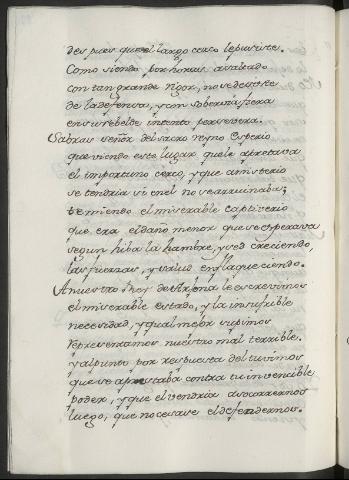 despues que el largo cerco le pusiste.
Como siendo por horas asaltado
con tan grande rigor, no se desiste
de la defensa, y con soberuia fiera
en su rebelde intento persevera.
Sabras señor del sacro reyno Esperio
que viendo este lugar, que le apretava
el importuno cerco, y que a misterio
se tendria si en el no se arruinaba;
temiendo el miserable captiverio
que era el daño menor que se esperava
segun hiba la hambre, y sed creciendo,
las fuerzas, y salud enflaqueciendo.
A nuestro Rey de le escrevimos
el miserable estado, y la insufrible
necesidad, y qual mejor supimos
representamos nuestro mal terrible.
y al punto por respuesta del tuvimos
que se aprestaba contra tu invencible
poder, y que el vendria a socorrernos
luego, que no cesase el defendernos.